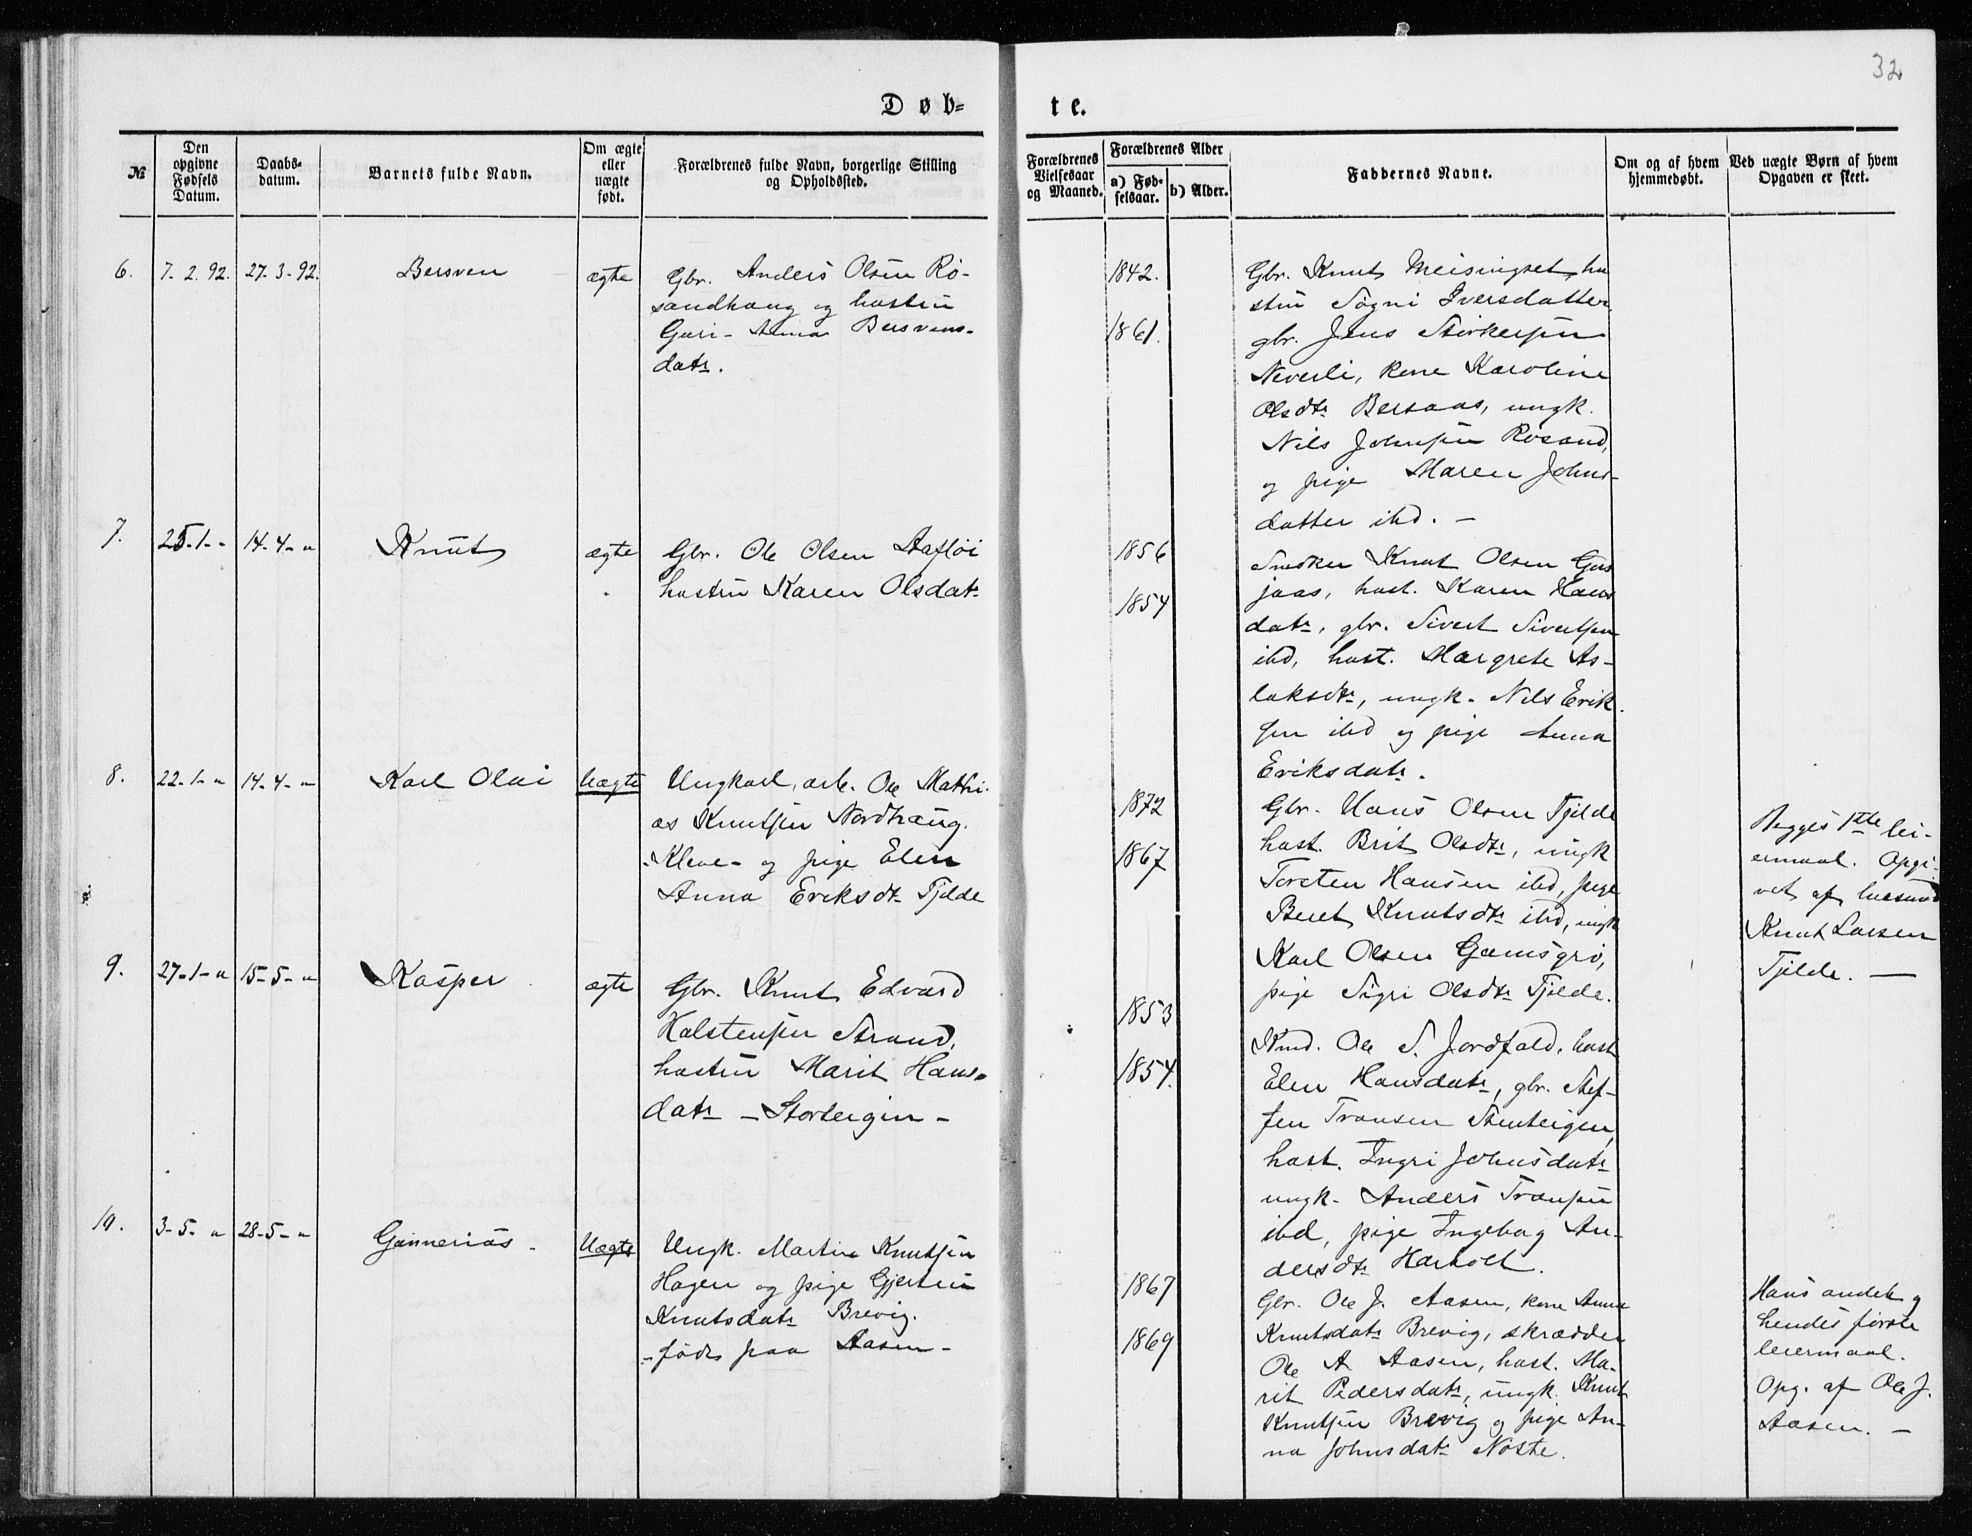 32
Døb-
te.
№
Den opgivne Fødsels Datum.
Daabs-datum.
Barnets fulde Navn.
Om ægte eller uægte født.
Forældrenes fulde Navn, borgerlige Stilling og Opholdssted.
Forældrenes Vielsesaar og Maaned.
Forældrenes Alder
a) Fødselsaar.
b) Alder.
Faddernes Navne.
Om og af hvem hjemmedøbt.
Ved uægte Børn af hvem Opgaven er skeet.
6.
7-2.92.
27-3-92.
Bersven
ægte
Gbr. Anders Olsen Rø-
sandhaug og hustru
Guri-Anna Bersvens-
datr.
1842.
1861.
Gbr. Knut Meisingset, hu
stru Signi Iversdatter
gbr. Jens Størkersen
Neverli, kone Karoline
Olsdtr Bersaas, ungk.
Nils Johnsen Røsand,
og pige Maren Johns-
datter ibd. -
7.
25-1-"
14-4-"
Knut
ægte
Gbr. Ole Olsen Aafløi
hustru Karen Olsdatr
1856
1854
Snedker Knut Olsen
jaas, hust. Karen Hans
datr, gbr. Sivert Sivertsen
ibd, hust. Margrete As-
laksdtr, ungk. Nils Erik
sen ibd og pige Anna
Eriksdatr.
8.
22-1-"
14-4-"
Karl Olai
Uægte
Ungkarl, arb. Ole Mathi-
as Knutsen Nordhaug.
-Kleve- og pige Elen
Anna Eriksdtr Tjelde
1872
1867
Gbr. Hans Olsen Tjelde
hust. Brit Olsdtr, ungk
Torsten Hansen ibd, pige
Beret Knutsdtr ibd, ungk
Karl Olsen Gamsgrø,
pige Sigri Olsdtr Tjelde.
Begges 1ste lei-
ermaal. Opgi-
vet af husmd
Knut Larsen
Tjelde. —
9.
27-1-"
15-5-"
Kasper
ægte
Gbr. Knut Edvard
Halstensen Strand,
hustru Marit Hans-
datr - Storteigen -
1853
1854.
Kmd. Ole S. Jordfald, hust
Elen Hansdatr, gbr. Stef-
fen Transen Stenteigen,
hust. Ingri Johnsdatr
ungk. Anders Transen
ibd, pige Ingebog An-
dersdtr Harholt.
10.
3-5-"
28-5-"
Gunnerius -
Uægte
Ungk. Martin Knutsen
Hagen og pige Gjertru
Knutsdatr Brevig.
- født paa Aasen -
1867
1869
Gbr. Ole J. Aasen, kone Anna
Knutsdatr Brevig, skrædder
Ole A. Aasen, hust. Ma-
rit Pedersdatr, ungk. Knut
Knutsen Brevig og pige An-
na Johnsdatr Nøste.
Hans andet og
hendes første
leiermaal.
Opg. af Ole J.
Aasen. -